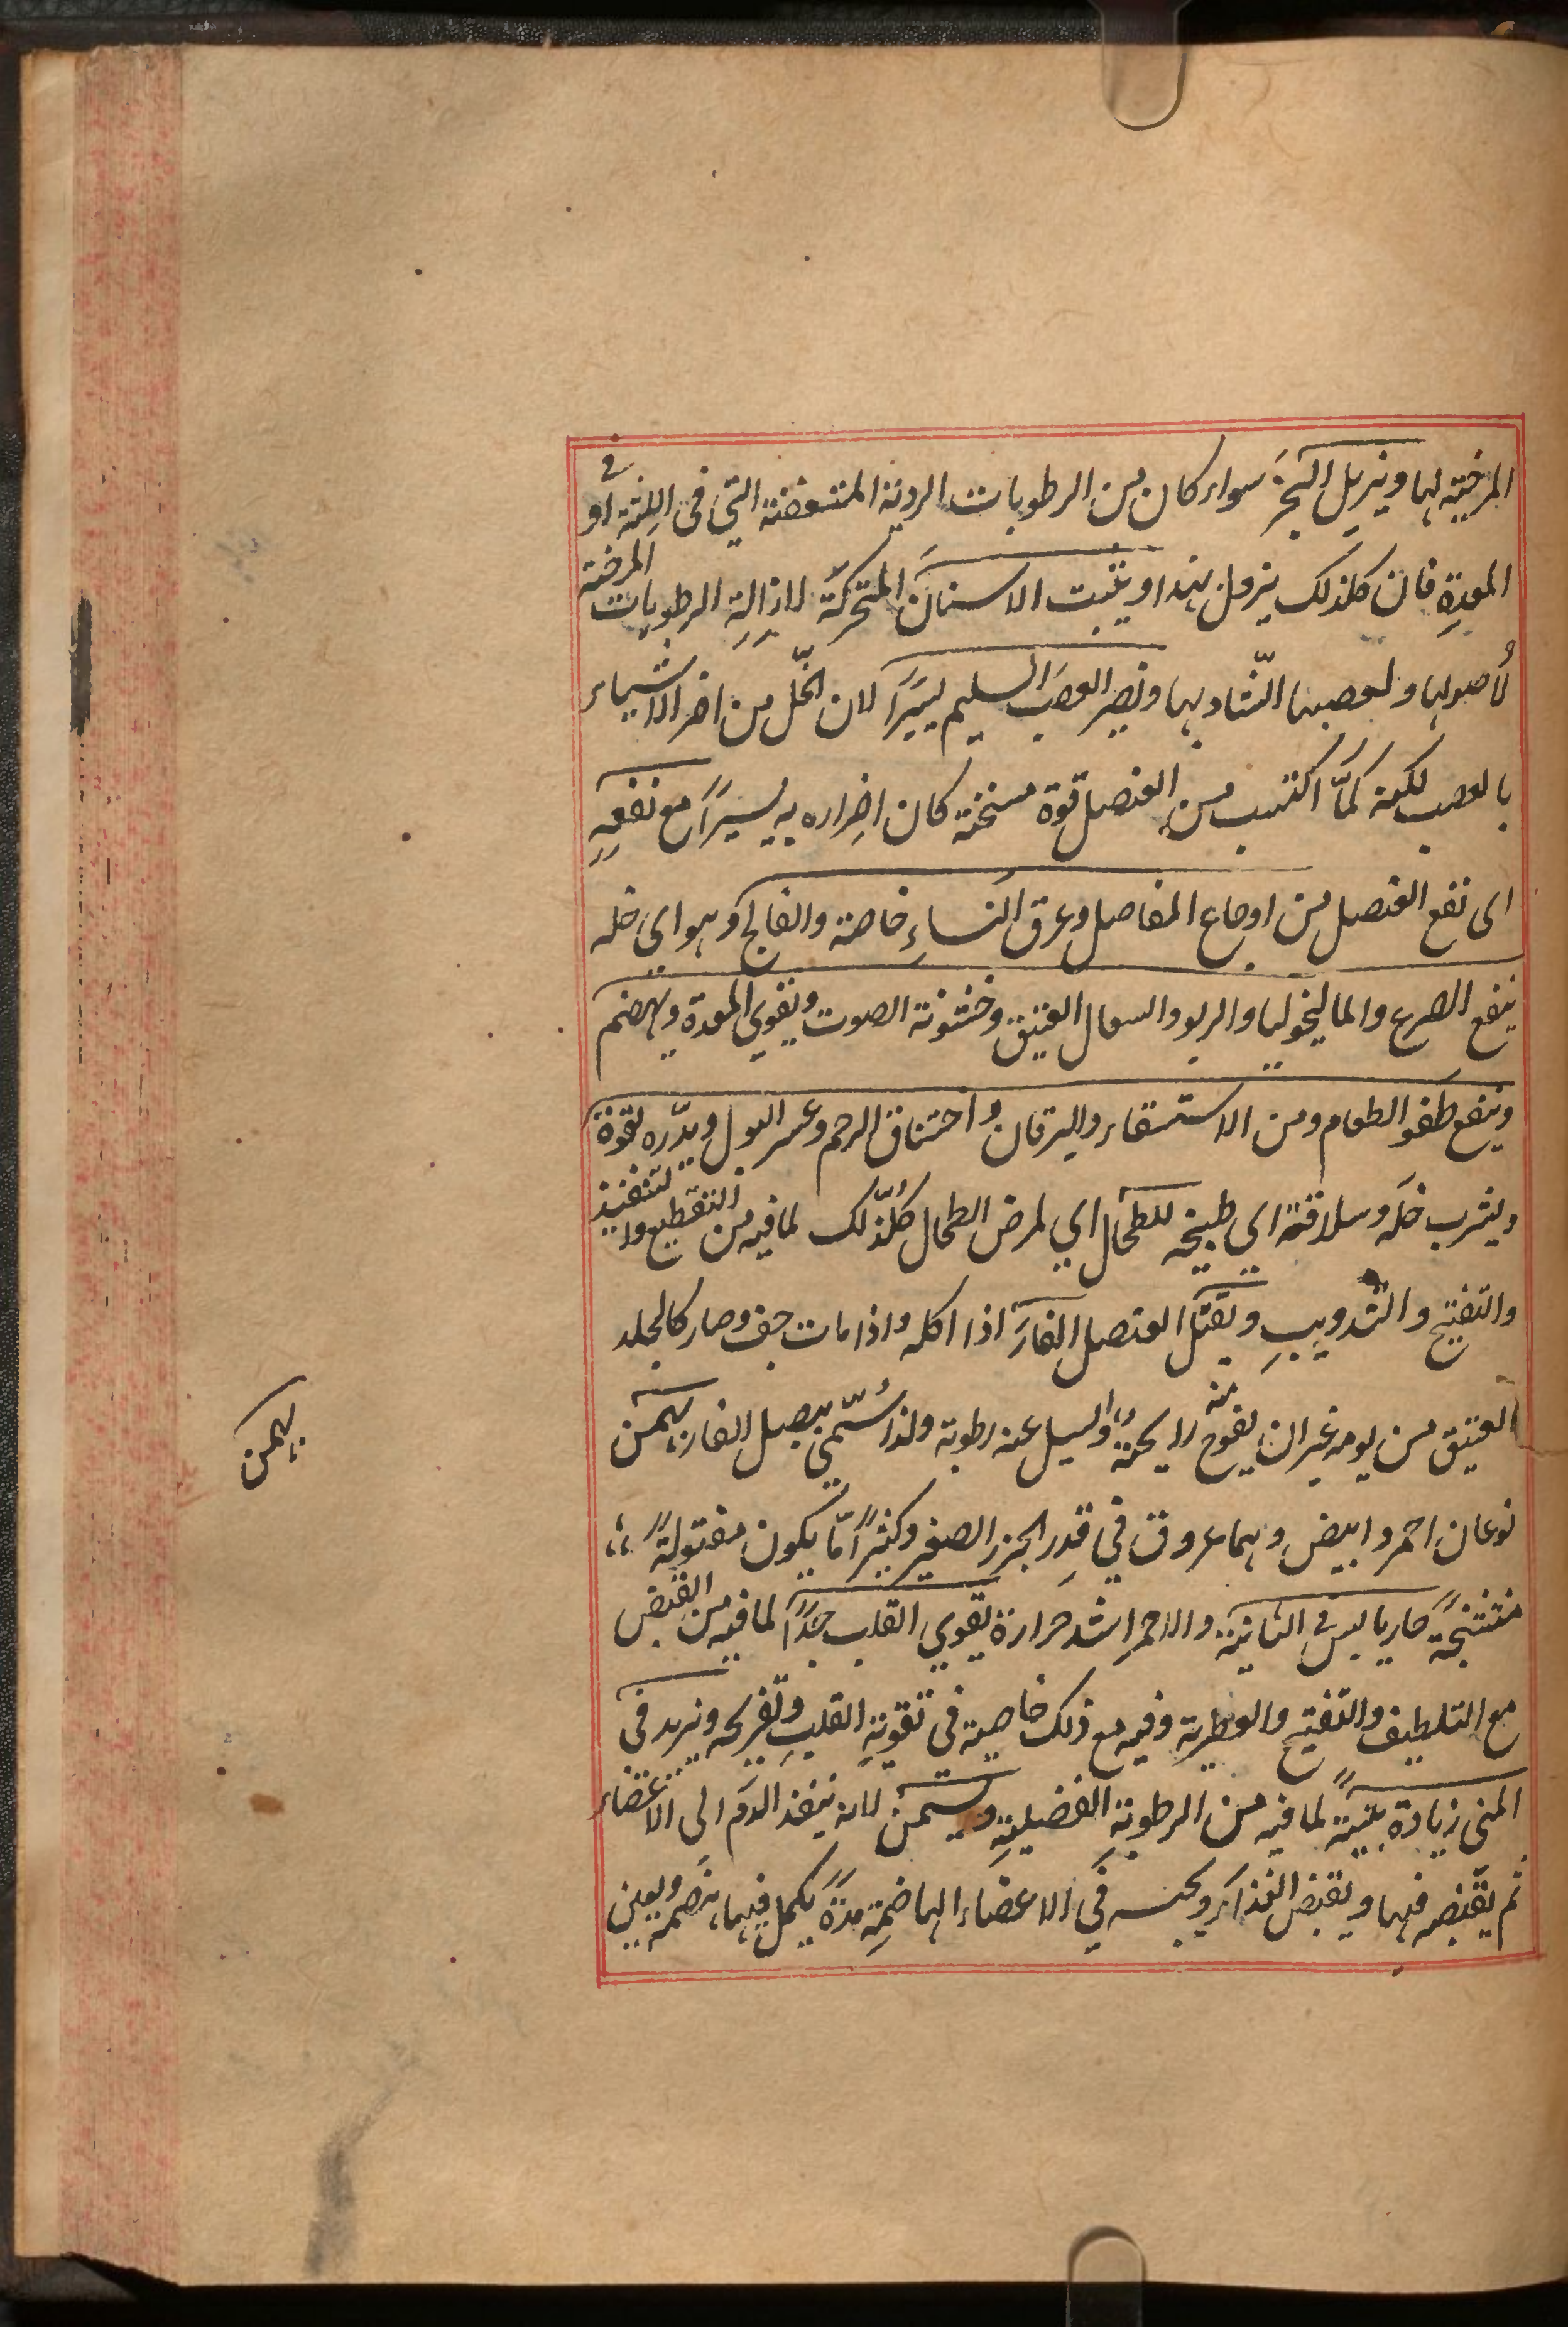 المرخية لها ويزيل البخر سواء كان من الرطوبات الردية المتعفنة التي في اللثة او في
المعدة فان كلذلك يزول بهذا ويثبت الاسنان المتحركة لازالة الرطوبات المرخية
لأصولها ولعصبها الشاد بها ويضر العصب السليم يسيرا لان الخل من اضر الاشياء
بالعصب لكنه لمّا اكتسب من العنصل قوة مسخنة كان اضراره به يسيراً مع نفعه
اى نفع العنصل من اوجاع المفاصل وعرق النساء خاصة والفالج وهو اي خله
ينفع الصرع والماليخوليا والربو والسعال العتيق وخشونة الصوت ويقوي المعدة ويهضم
وينفع طفو الطعام ومن الاستسقاء واليرقان واختناق الرحم وعسر البول ويدّره لقوة
ويشرب خله وسلاقته اي طبيخه للطحال اي لمرض الطحال كلّذلك لما فيه من التقطيع والتنفيذ
والتفتيح والتذويب ويقتل العنصل الفار اذا اكله واذا مات جف وصار كالجلد
العتيق من يومه غير ان يفوح منه رايحة او يسيل عنه رطوبة ولذا سُمّي ببصل الفار بهمن
بهمن
نوعان احمر وابيض وهما عروق في قدر الجزر الصغير وكثيراً مّا يكون مفتولةً
متشنجةً حار يابس في الثانية والاحمر اشد حرارة يقوي القلب جدًا لما فيه من القبض
مع التلطيف والتفتيح والعطرية وفيه مع ذلك خاصية في تقوية القلب وتفريحه ويزيد في
المنى زيادة بينةً لما فيه من الرطوبة الفضيلية ويسمن لانه ينفذ الدم الى الاعضاء
ثم يقبضه فيها ويقبض الغذاء ويحبسه في الاعضاء الهاضمة مدةً يكمل فيها هضمه ويعين